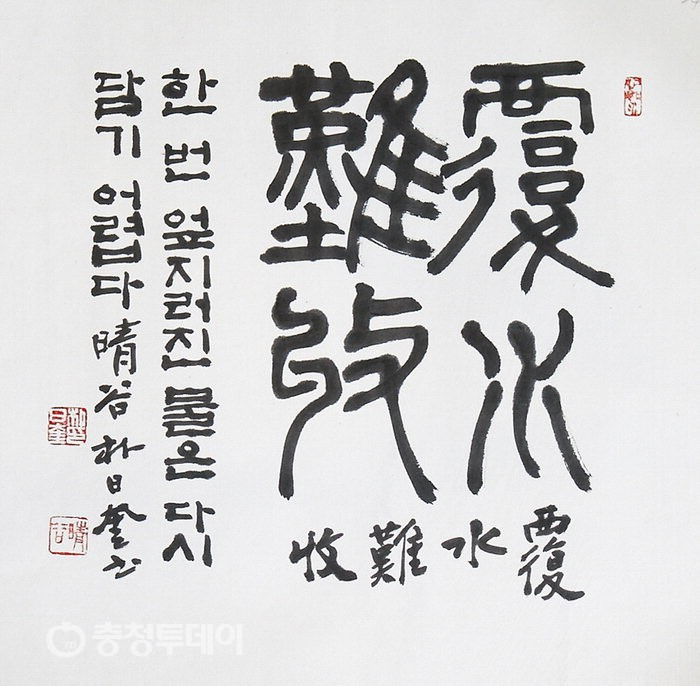 覆水
難收
覆水難收
한 번 엎지러진 물은 다시
담기 어렵다 晴谷 朴日奎 书
晴谷
충청투데이